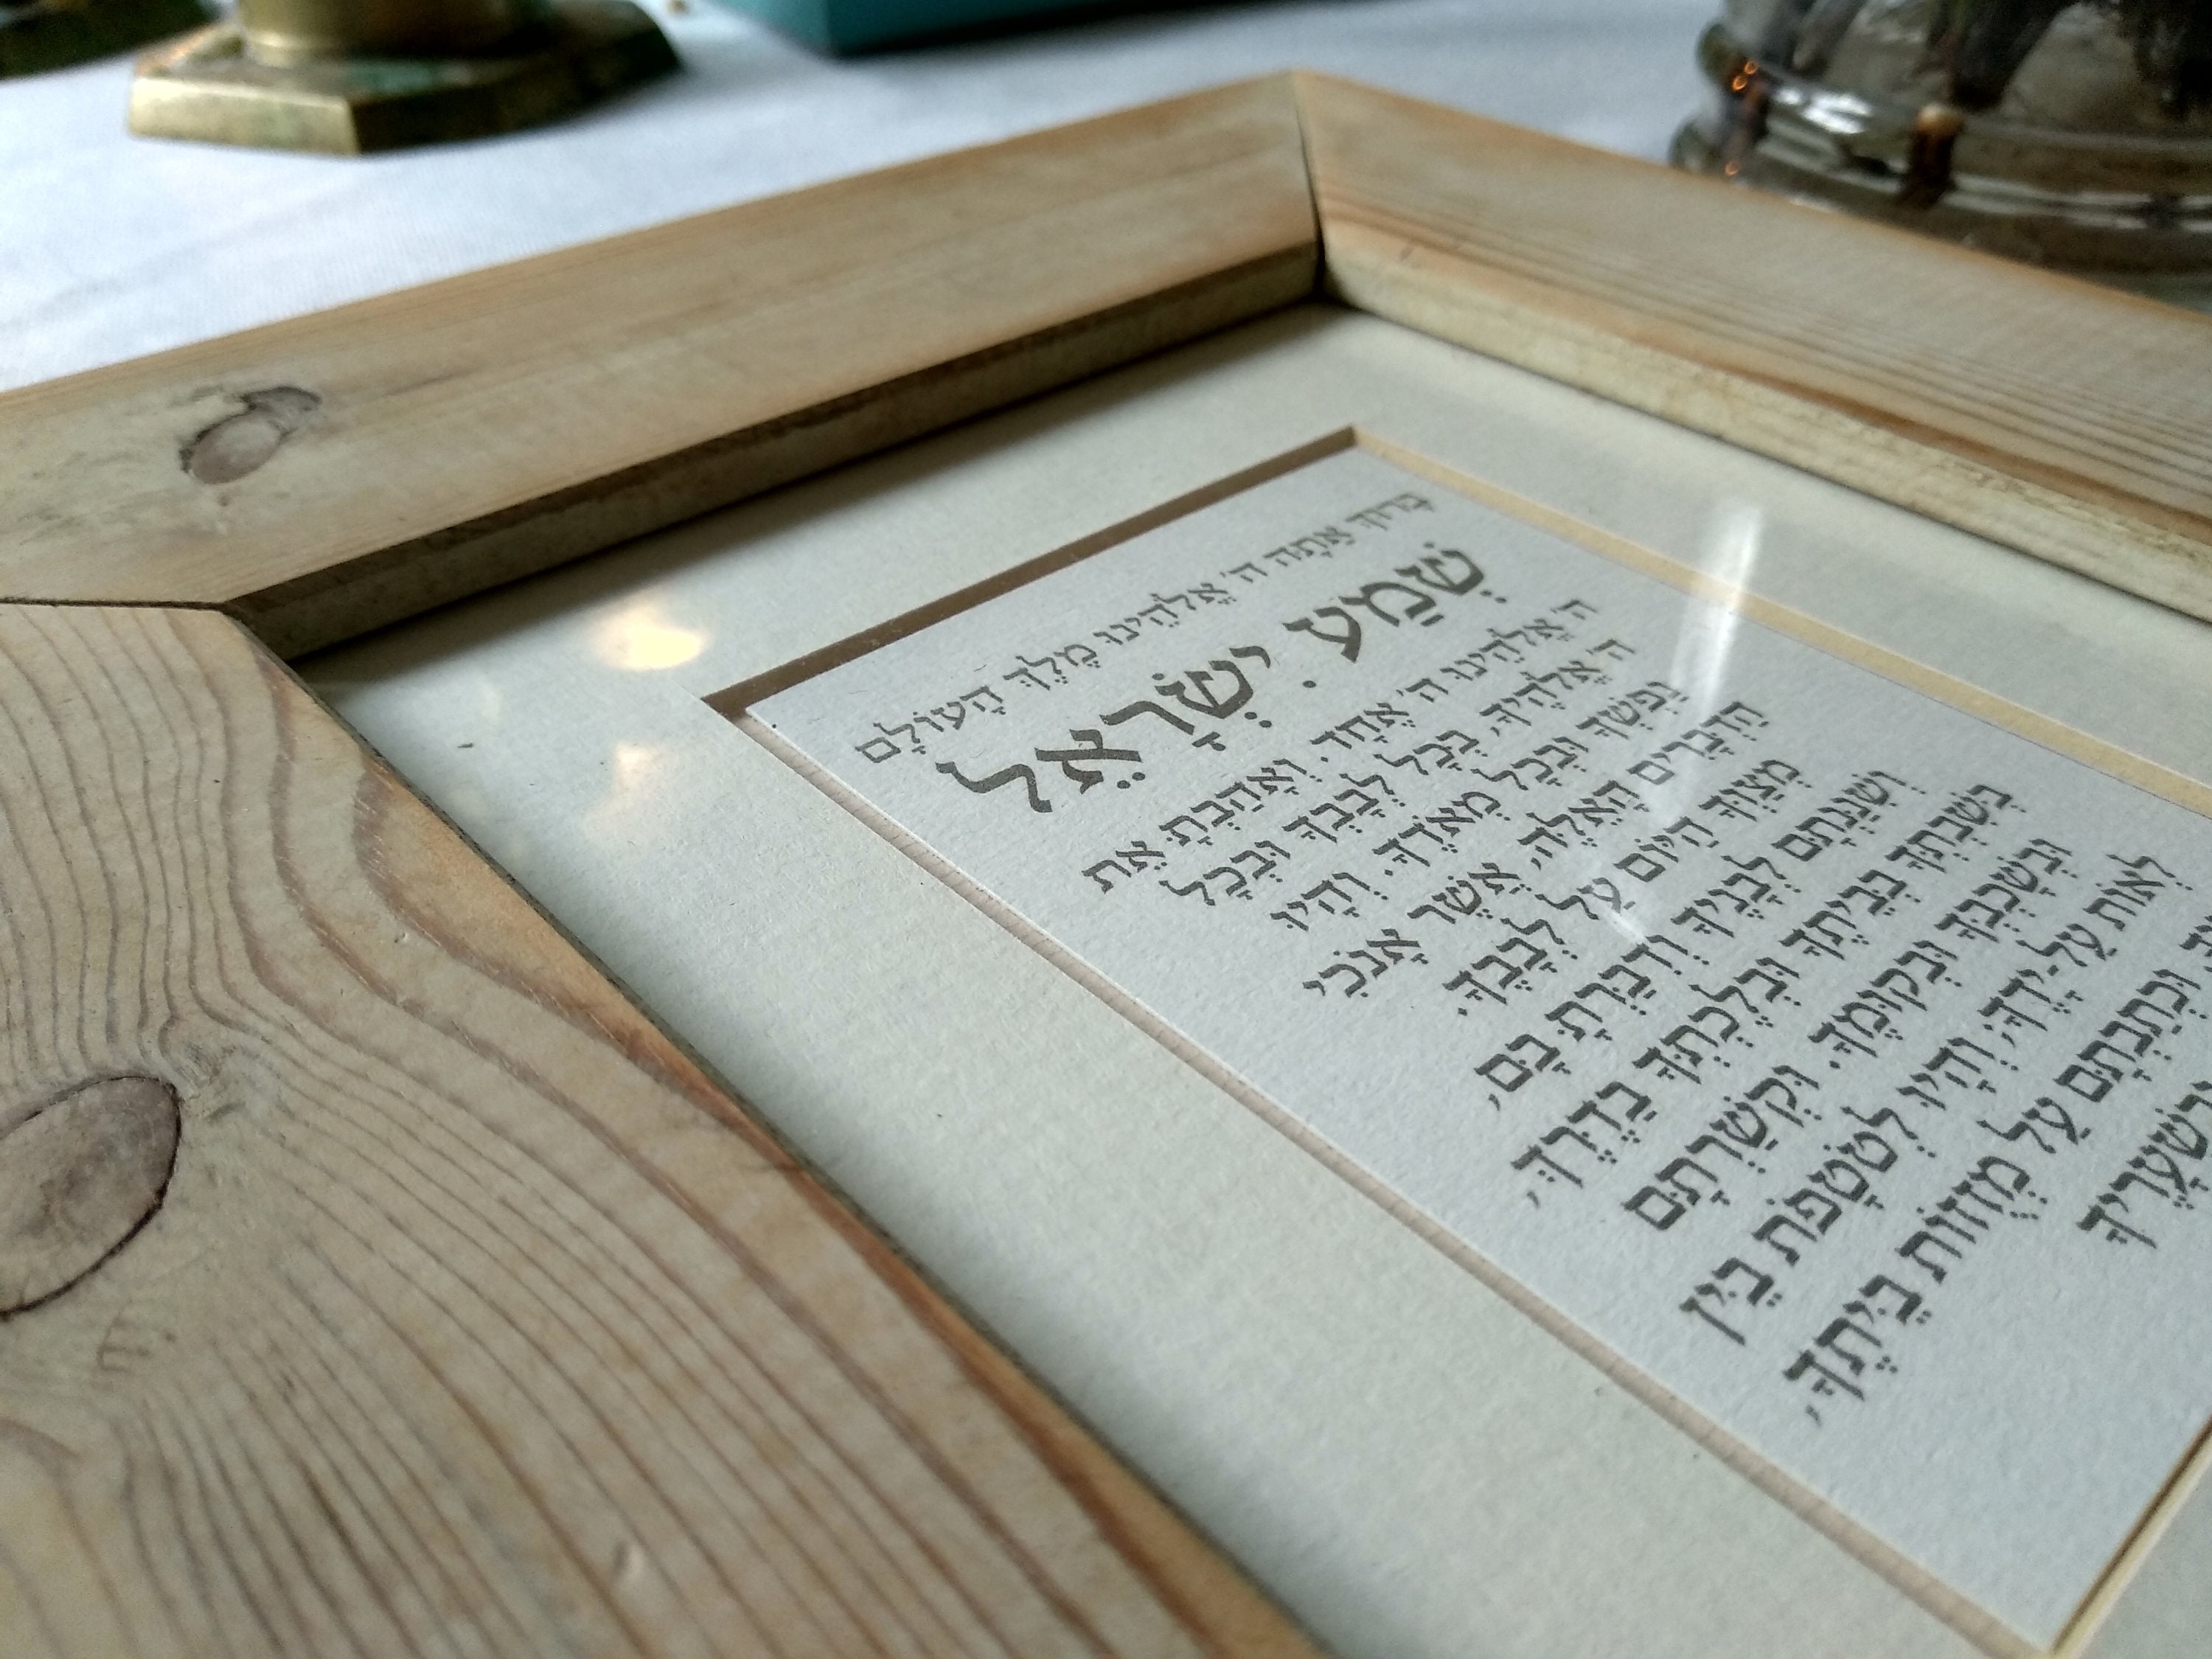 בָּרוּךְ אַתָּה ה' אֱלֹהֵינוּ מֶלֶךְ הָעוֹלָם
שְׁמַע יִשְׂרָאֵל
ה' אֱלֹהֵינוּ ה' אֶחָד. וְאָהַבְתָּ אֵת
ה' אֱלֹהֶיךָ, בְּכָל לְבָבְךָ וּבְכָל
נַפְשְׁךָ וּבְכָל מְאֹדֶךָ. וְהָיוּ
הַדְּבָרִים הָאֵלֶּה, אֲשֶׁר אָנֹכִי
מְצַוְּךָ הַיּוֹם עַל לְבָבֶךָ.
וְשִׁנַּנְתָּם לְבָנֶיךָ וְדִבַּרְתָּ בָּם,
בְּשִׁבְתְּךָ בְּבֵיתֶךָ וּבְלֶכְתְּךָ בַדֶּרֶךְ,
וּבְשָׁכְבְּךָ וּבְקוּמֶךָ. וּקְשַׁרְתָּם
לְאוֹת עַל-יָדֶךָ, וְהָיוּ לְטֹטָפֹת בֵּין
וּכְתַבְתָּם עַל מְזוּזוֹת בֵּיתֶךָ,